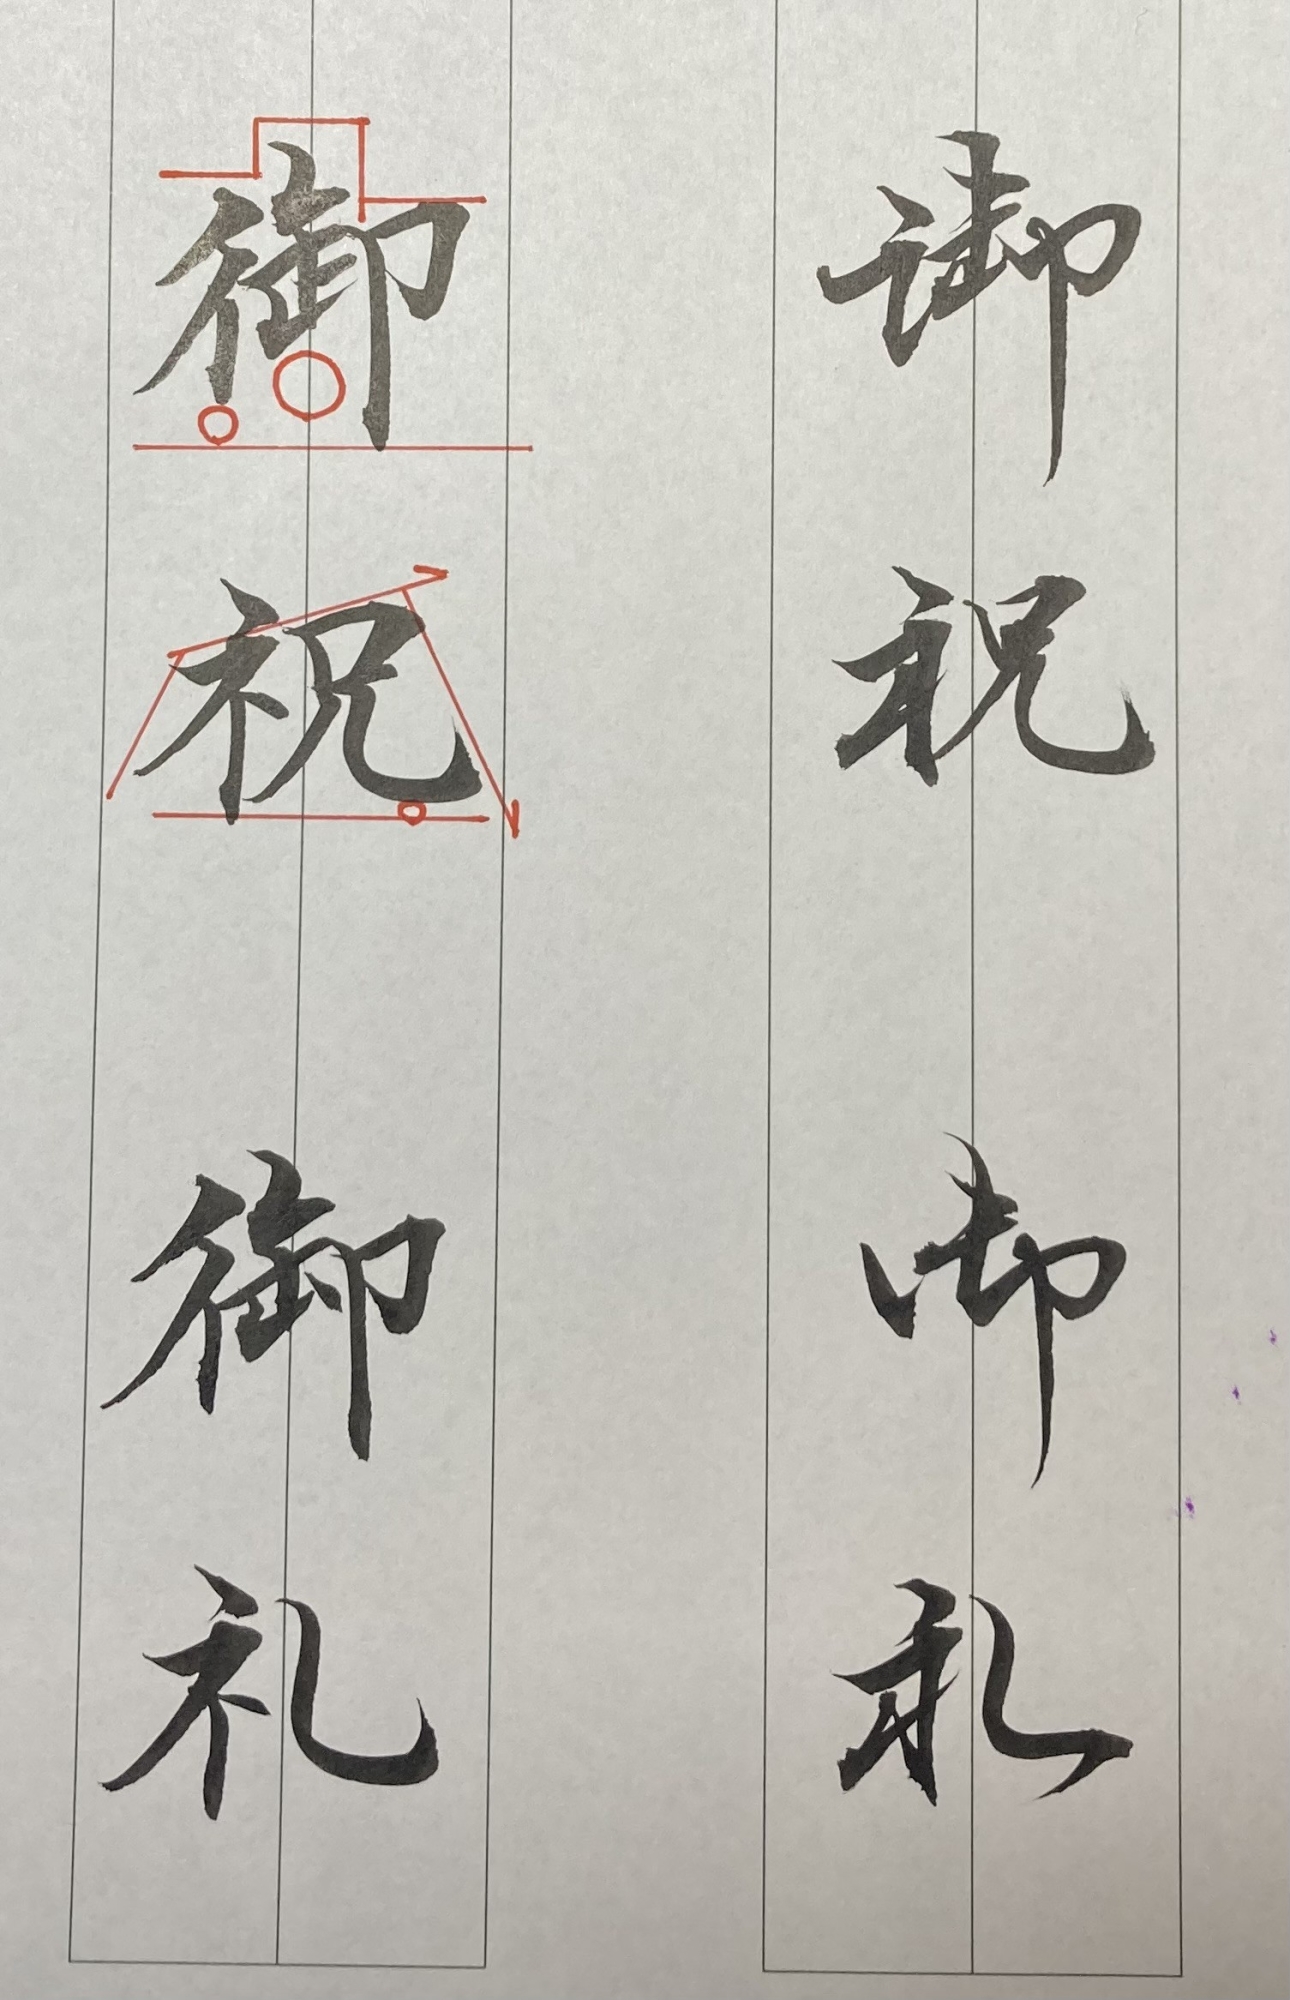 御祝
御礼
御祝
御礼